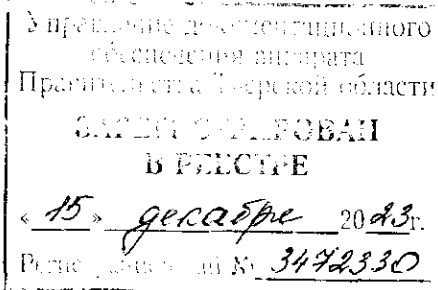 Управление документационного
обеспечения аппарата
Правительства Тверской области
ЗАРЕГИСТРИРОВАН
В РЕЕСТРЕ
« 15 » декабре 2023г.
№ 3472330